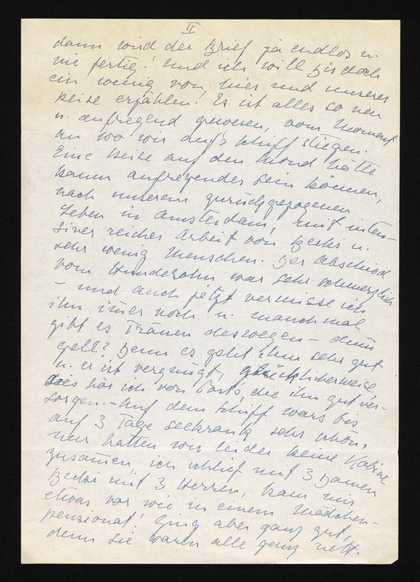 II
dann wird der Brief ja endlos u.
nie fertig! Und ich will Dir doch
ein wenig von hier und unserer
Reise erzählen! Es ist alles so neu
u. aufregend gewesen, vom Moment
an wo wir aufs Schiff stiegen.
Eine Reise auf den Mond hätte
kaum aufregender sein können,
nach unserem zurückgezogenen
Leben in Amsterdam, mit inten-
siver reicher Arbeit von u.
sehr wenig Menschen. Der Abschied
vom Hundesohn war sehr schmerzlich
– und auch jetzt vermisse ich
ihn immer noch u. manchmal
gibt es Tränen deswegen – dumm
gell? Denn es geht ihm sehr gut
u. er ist vergnügt, glücklicherweise
hör ich von die ihn gut ver-
sorgen. – Auf dem Schiff wars bis
auf 3 Tage seekrank sehr schön,
nur hatten wir leider keine Kabine
zusamen, ich schlief mit 3 Damen
mit 3 Herren, kam mir
etwas vor wie in einem Mädchen-
pensionat! Ging aber ganz gut,
denn sie waren alle ganz nett.